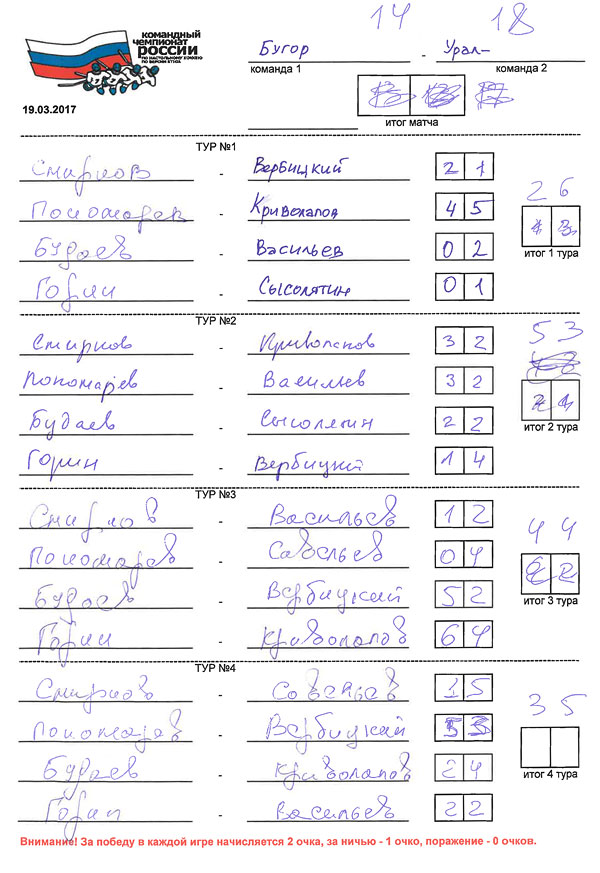 14 18
командный
чемпионат
россии
по настольному хоккею
по версии ETHA
Бугор - Урал-
команда 1 команда 2
19.03.2017
итог матча
ТУР №1
Смирнов - Вербицкий 2 1
Пономарев - Криволапов 4 5
2 6
Будаев - Васильев 0 2
итог 1 тура
Горин - Сысолятин 0 1
ТУР №2
5 3
Смирнов - Криволапов 3 2
Пономарев - Васильев 3 2
Будаев - Сысолятин 2 2
итог 2 тура
Горин - Вербицкий 1 4
ТУР №3
Смирнов - Васильев 1 2
4 4
Пономарев - Савельев 0 4
Будаев - Вербицкий 5 2
итог 3 тура
Горин - Криволапов 6 4
ТУР №4
Смирнов - Савельев 1 5
3 5
Пономарев - Вербицкий 5 3
Будаев - Криволапов 2 4
итог 4 тура
Горин - Васильев 2 2
Внимание! За победу в каждой игре начисляется 2 очка, за ничью - 1 очко, поражение - 0 очков.